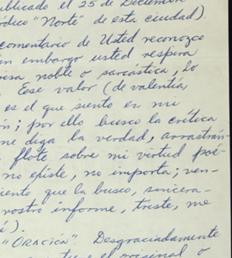 publicado el 25 de Diciembre
"Norte" de esta ciudad).
comentario de Usted reconozco
sin embargo usted respira
noble o sarcástica, lo
Ese valor (de valentía,
es el que siento en mi
por ello busco la crítica
me diga la verdad, arrastrán-
flote sobre mi virtud poé-
no existe, no importa; ven-
que la busco, sincera-
rostro informe, triste, me
"ORACIÓN". Desgraciadamente
el original o